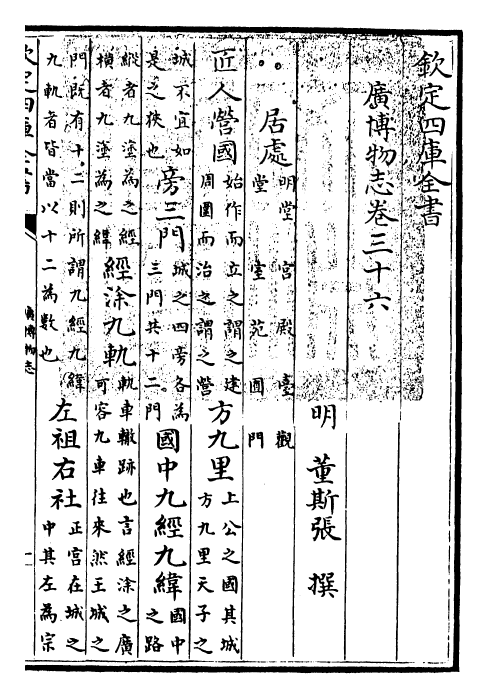 欽定四庫全書
廣博物志卷三十六
明 董斯張 撰
居處 明堂 宮殿 臺觀
堂 室 苑 囿 門
匠人營國 始作而立之謂之建
周圍而治之謂之營 方九里 上公之國其城
方九里天子之
城不宜如
是之狹也 旁三門 城之四旁各為
三門共十二門 國中九經九緯 國中
之路
縱者九塗為之經
橫者九塗為之緯 經涂九軌 軌車轍跡也言經涂之廣
可容九車往來然王城之
門既有十二則所謂九經九緯
九軌者皆當以十二為數也 左祖右社 正宮在城之
中其左為宗
欽定四庫全書
廣博物志